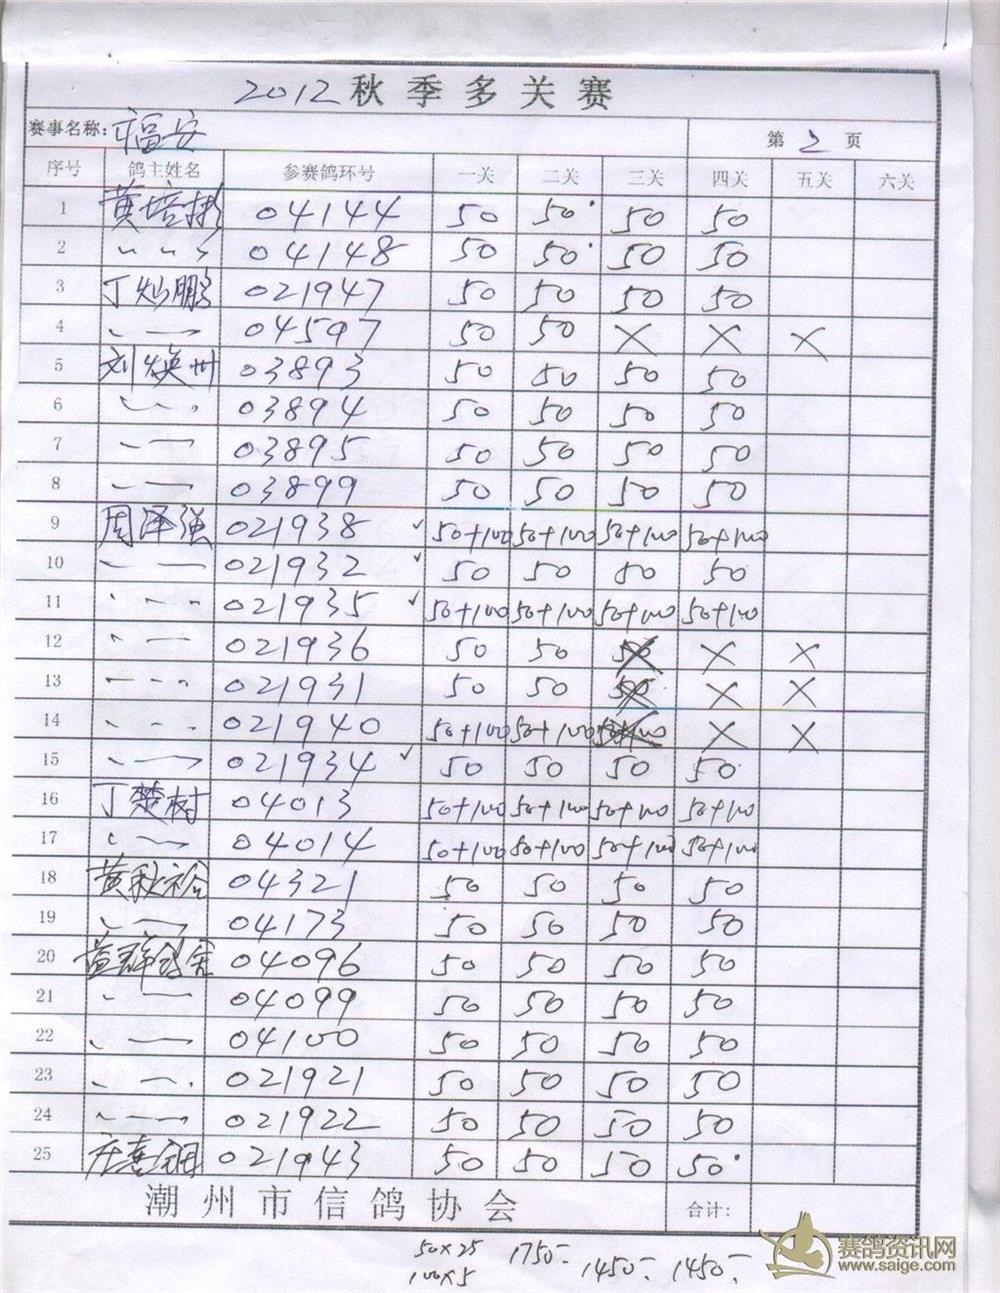 2012秋季多关赛
赛事名称: 福安 第 2 页
序号 鸽主姓名 参赛鸽环号 一关 二关 三关 四关 五关 六关
1 黄培彬 04144 50 50 50 50
2 〃 04148 50 50 50 50
3 丁灿鹏 021947 50 50 50 50
4 〃 04597 50 50 × × ×
5 刘焕州 03893 50 50 50 50
6 〃 03894 50 50 50 50
7 〃 03895 50 50 50 50
8 〃 03899 50 50 50 50
9 周泽强 021938 ✓ 50+100 50+100 50+100 50+100
10 〃 021932 ✓ 50 50 50 50
11 〃 021935 ✓ 50+100 50+100 50+100 50+100
12 〃 021936 50 50 50 × ×
13 〃 021931 50 50 50 × ×
14 〃 021940 50+100 50+100 50+100 × ×
15 〃 021934 ✓ 50 50 50 50
16 丁楚树 04013 50+100 50+100 50+100 50+100
17 〃 04014 50+100 50+100 50+100 50+100
18 黄 04321 50 50 50 50
19 〃 04173 50 50 50 50
20 04096 50 50 50 50
21 〃 04099 50 50 50 50
22 〃 04100 50 50 50 50
23 〃 021921 50 50 50 50
24 〃 021922 50 50 50 50
25 021943 50 50 50 50
潮州市信鸽协会 合计:
50×25 1750- 1450- 1450-
100×5
赛鸽资讯网
www.saige.com